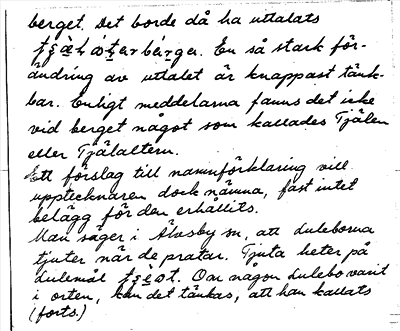 berget. Det borde då ha uttalats
En så stark för-
ändring av uttalet är knappast tänk-
bar. Enligt meddelarna fanns det icke
vid berget något som kallades Tjälen
eller Tjälaltern.
Ett förslag till namnförklaring vill
upptecknaren dock nämna, fast intet
belägg för den erhållits.
Man säger i Älvsby sn, att duleborna
tjuter när de pratar. Tjuta heter på
dulemål Om någon dulebo varit
i orten, kan det tänkas, att han kallats
(forts.)